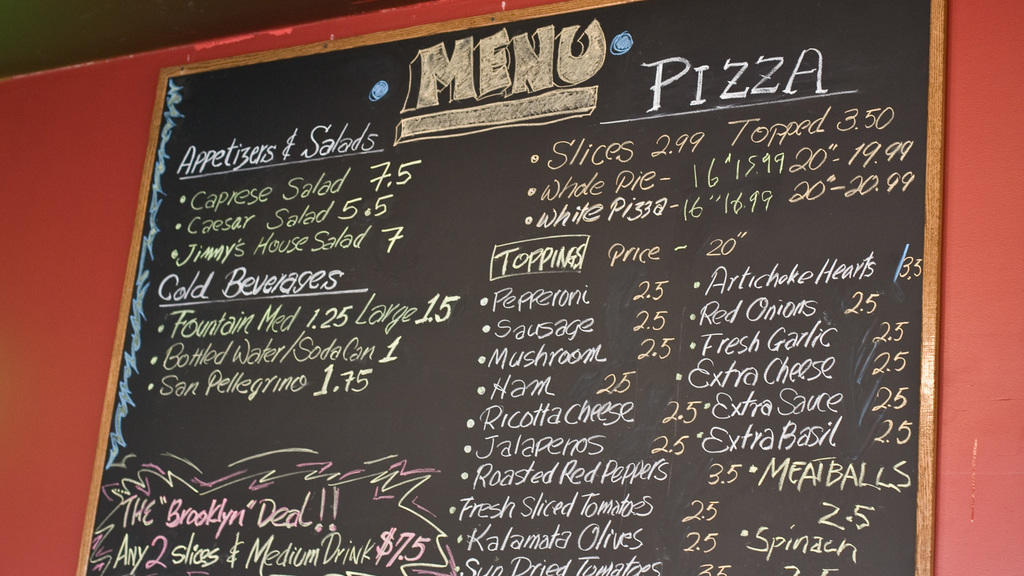 MENU
PIZZA
Appetizers & Salads
• Caprese Salad 7.5
• Caesar Salad 5.5
• Jimmy's House Salad 7
Cold Beverages
• Fountain Med 1.25 Large 1.5
• Bottled Water/Soda Can 1
• San Pellegrino 1.75
THE "Brooklyn" Deal!!
Any 2 slices & Medium Drink $7.5
• Slices 2.99 Topped 3.50
• Whole Pie - 16" 15.99 20" - 19.99
• White Pizza - 16" 16.99 20" - 20.99
TOPPINGS Price - 20"
• Pepperoni 2.5
• Sausage 2.5
• Mushroom 2.5
• Ham 2.5
• Ricotta Cheese 2.5
• Jalapenos 2.5
• Roasted Red Peppers 3.5
• Fresh Sliced Tomatoes 2.5
• Kalamata Olives 2.5
Sun Dried Tomatoes 3.5
• Artichoke Hearts 3.5
• Red Onions 2.5
• Fresh Garlic 2.5
• Extra Cheese 2.5
• Extra Sauce 2.5
• Extra Basil 2.5
• MEATBALLS
2.5
• Spinach
2.5